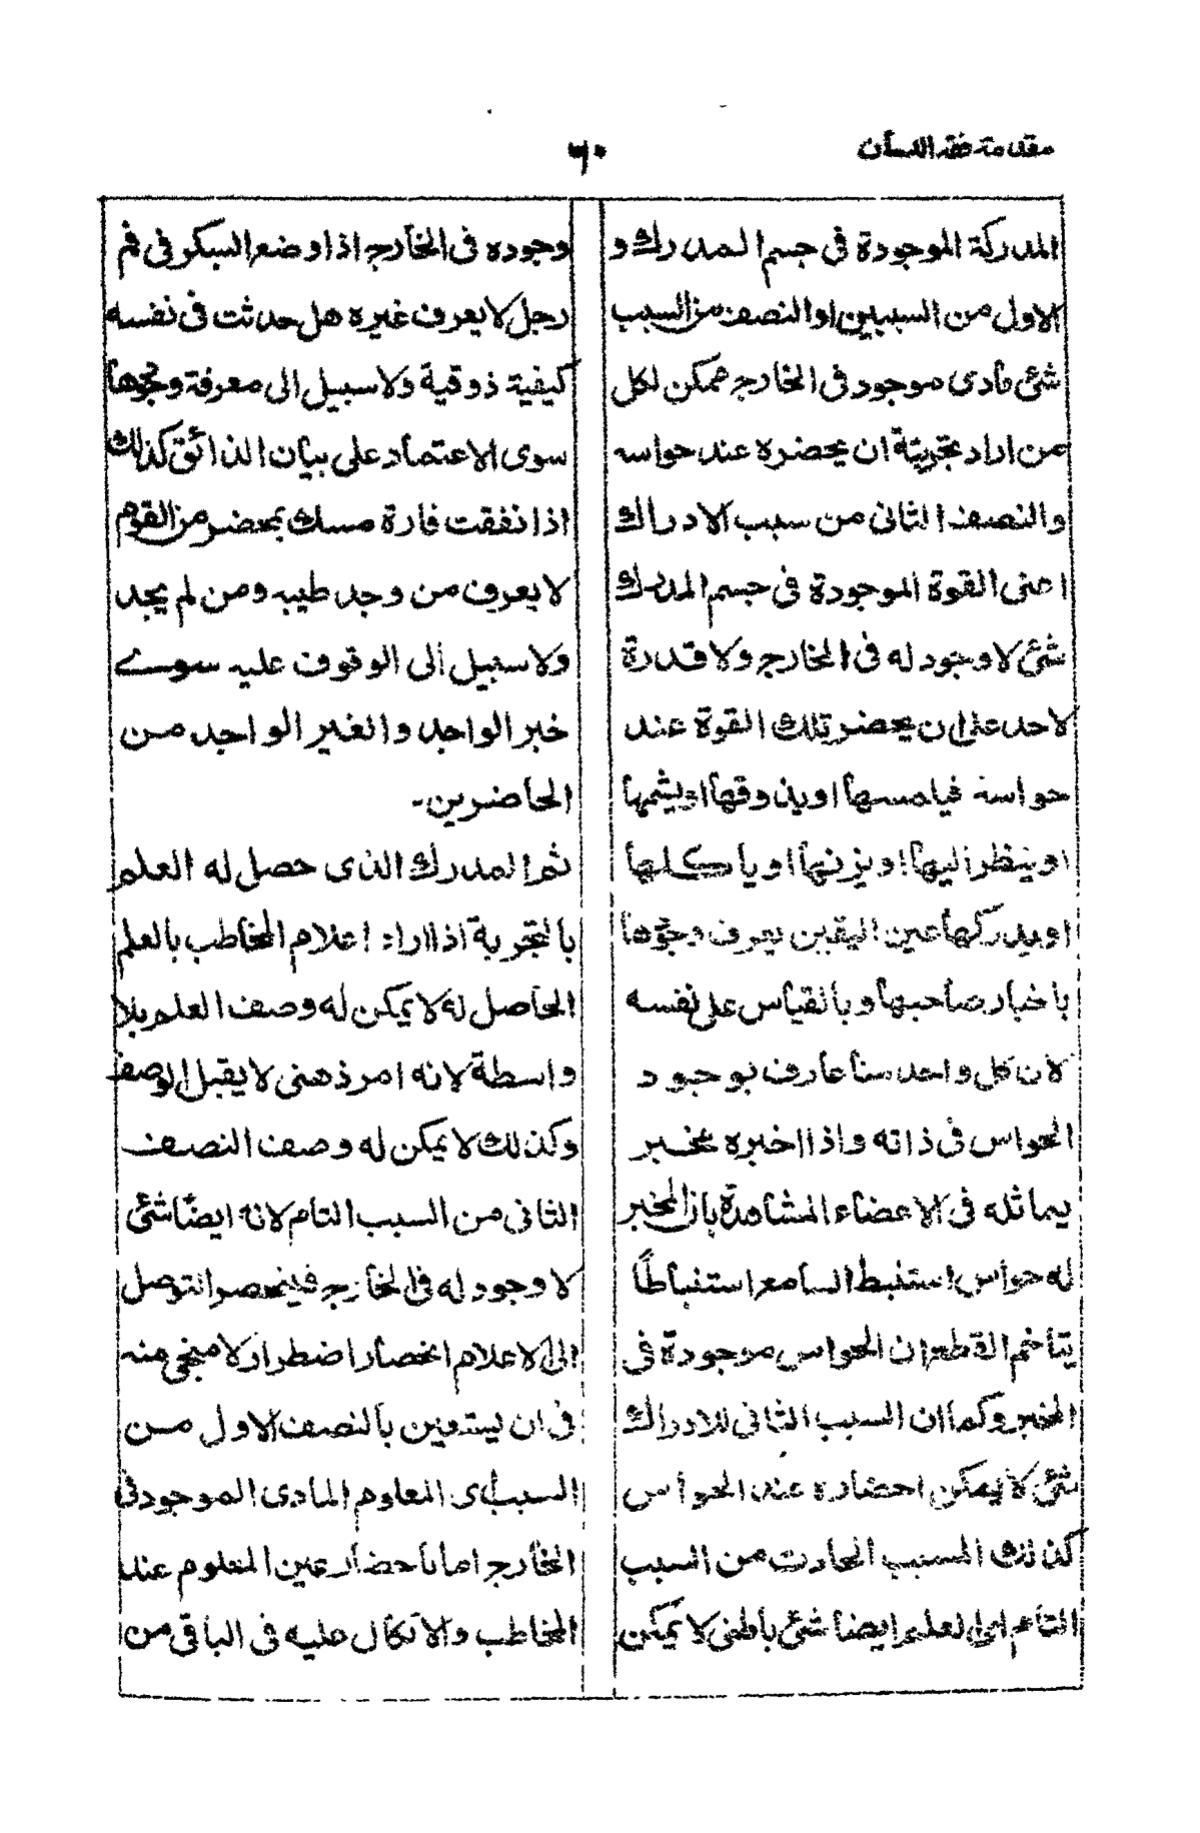 مقدمة فقه اللسان
٦٠
المدركة الموجودة فى جسم المدرك و
الاول من السببين او النصف من السبب
شئ مادى موجود فى الخارج ممكن لكل
من اراد تجربته ان يحضره عند حواسه
والنصف الثانى من سبب الادراك
اعنى القوة الموجودة فى جسم المدرك
شئ لا وجود له فى الخارج ولا قدرة
لاحد على ان يحضر تلك القوة عند
حواسه فيلمسها او يذوقها او يشمها
او ينظر اليها او يزنها او يأكلها
او يدركها عين اليقين يعرف وجودها
باخبار صاحبها وبالقياس على نفسه
لان كل واحد منا عارف بوجود
الحواس فى ذاته واذا اخبره مخبر
يماثله فى الاعضاء المشاهدة بان المخبر
له حواس استنبط السامع استنباطًا
يتاخم القطع ان الحواس موجودة فى
المخبر وكما ان السبب الثانى للادراك
شئ لا يمكن احضاره عند الحواس
كذلك المسبب الحادث من السبب
التام اى العلم ايضا شئ باطنى لا يمكن
وجوده فى الخارج اذا وضع السكر فى فم
رجل لا يعرف غيره هل حدثت فى نفسه
كيفية ذوقية ولا سبيل الى معرفة وجودها
سوى الاعتماد على بيان الذائق كذلك
اذا نفقت فارة مسك بمحضر من القوم
لا يعرف من وجد طيبه ومن لم يجد
ولا سبيل الى الوقوف عليه سوے
خبر الواجد والغير الواجد من
الحاضرين۔
ثم المدرك الذى حصل له العلم
بالتجربة اذا اراد اعلام المخاطب بالعلم
الحاصل له لا يمكن له وصف العلم بلا
واسطة لانه امر ذهنى لا يقبل الوصف
وكذلك لا يمكن له وصف النصف
الثانى من السبب التام لانه ايضًا شئ
لا وجود له فى الخارج فينحصر التوصل
الى الاعلام انحصارا ضطرار لا منجى منه
فى ان يستعين بالنصف الاول من
السبب اى المعلوم المادى الموجود فى
الخارج اما باحضار عين المعلوم عند
المخاطب والاتكال عليه فى الباقى من